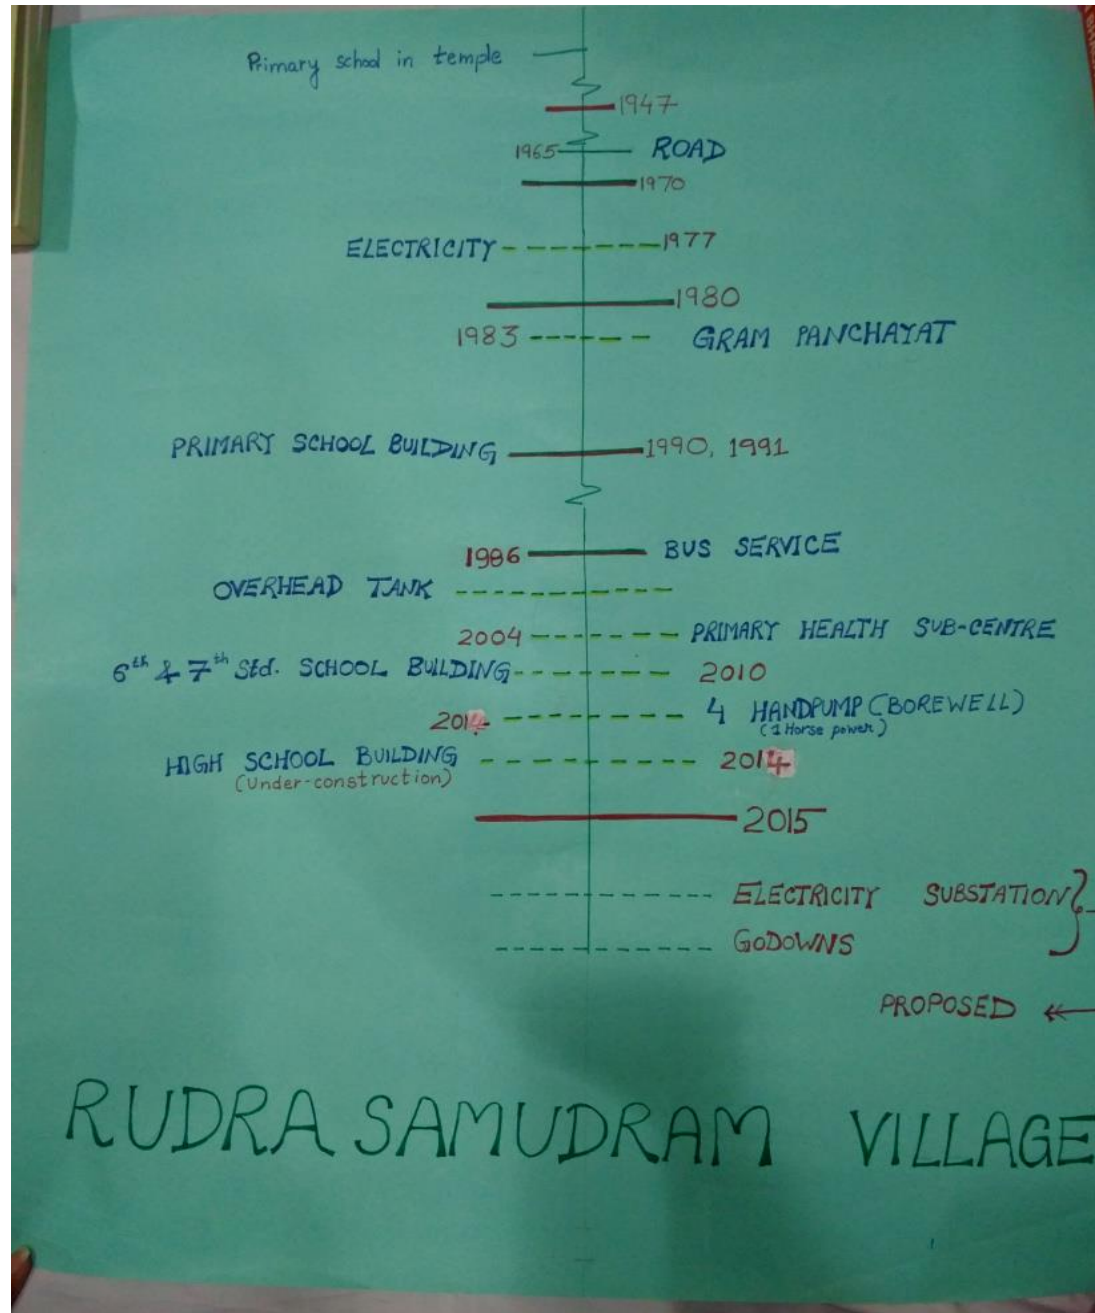 Primary school in temple
1947
1965 ROAD
1970
ELECTRICITY 1977
1980
1983 GRAM PANCHAYAT
PRIMARY SCHOOL BUILDING 1990, 1991
1986 BUS SERVICE
OVERHEAD TANK
2004 PRIMARY HEALTH SUB-CENTRE
6th & 7th Std. SCHOOL BUILDING 2010
2014 4 HANDPUMP (BOREWELL)
(1 Horse power)
HIGH SCHOOL BUILDING 2014
(Under-construction)
2015
ELECTRICITY SUBSTATION
GODOWNS
PROPOSED
RUDRA SAMUDRAM VILLAGE